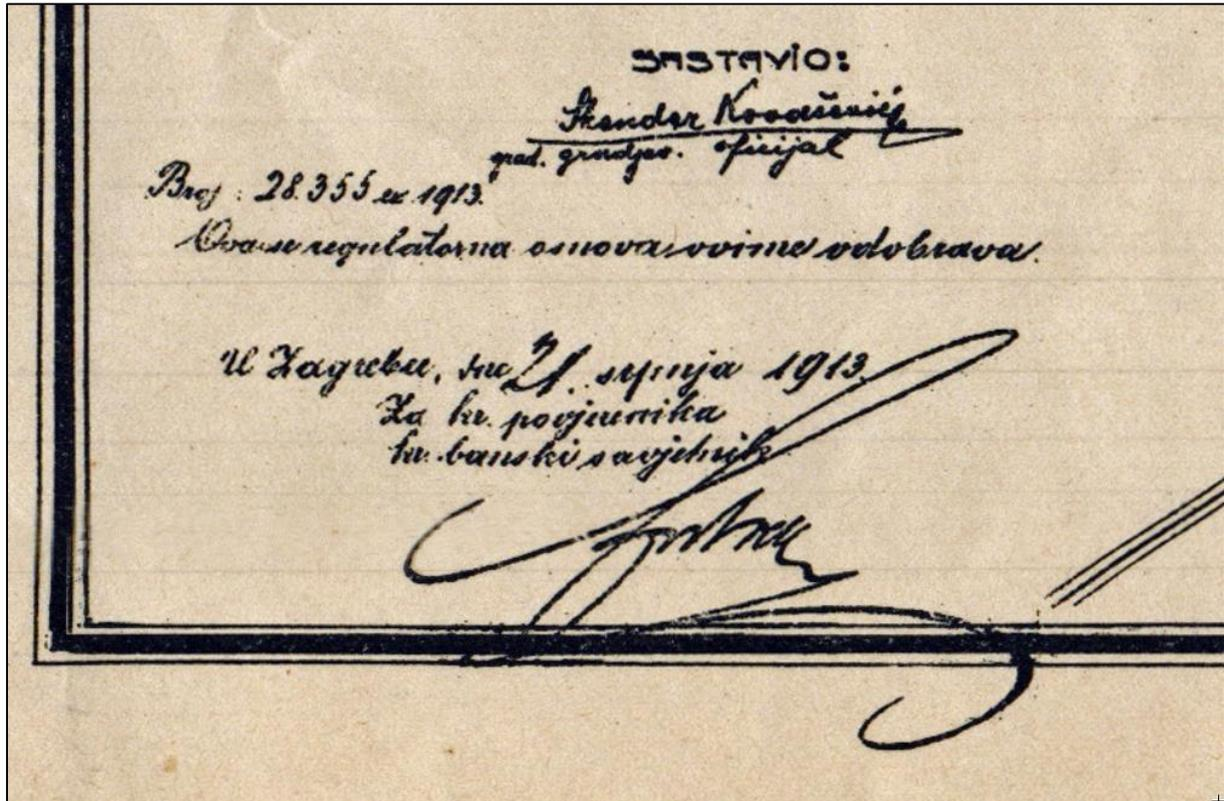 SASTAVIO:
Skender Kovačević
grad. gradjev. oficijal
Broj : 28.355 ex 1913.
Ova se regulatorna osnova ovime odobrava.
U Zagrebu, dne 21. srpnja 1913.
Za kr. povjerenika
kr. banski savjetnik